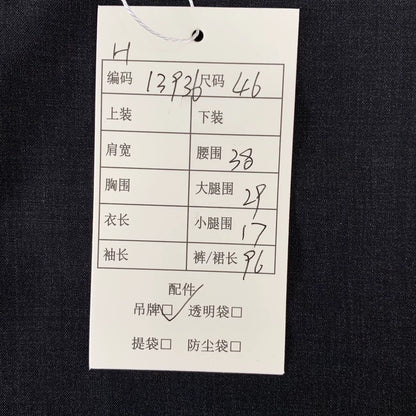 H
编码 13936 尺码 46
上装 下装
肩宽 腰围 38
胸围 大腿围 29
衣长 小腿围 17
袖长 裤/裙长 96
配件
吊牌☑ 透明袋□
提袋□ 防尘袋□